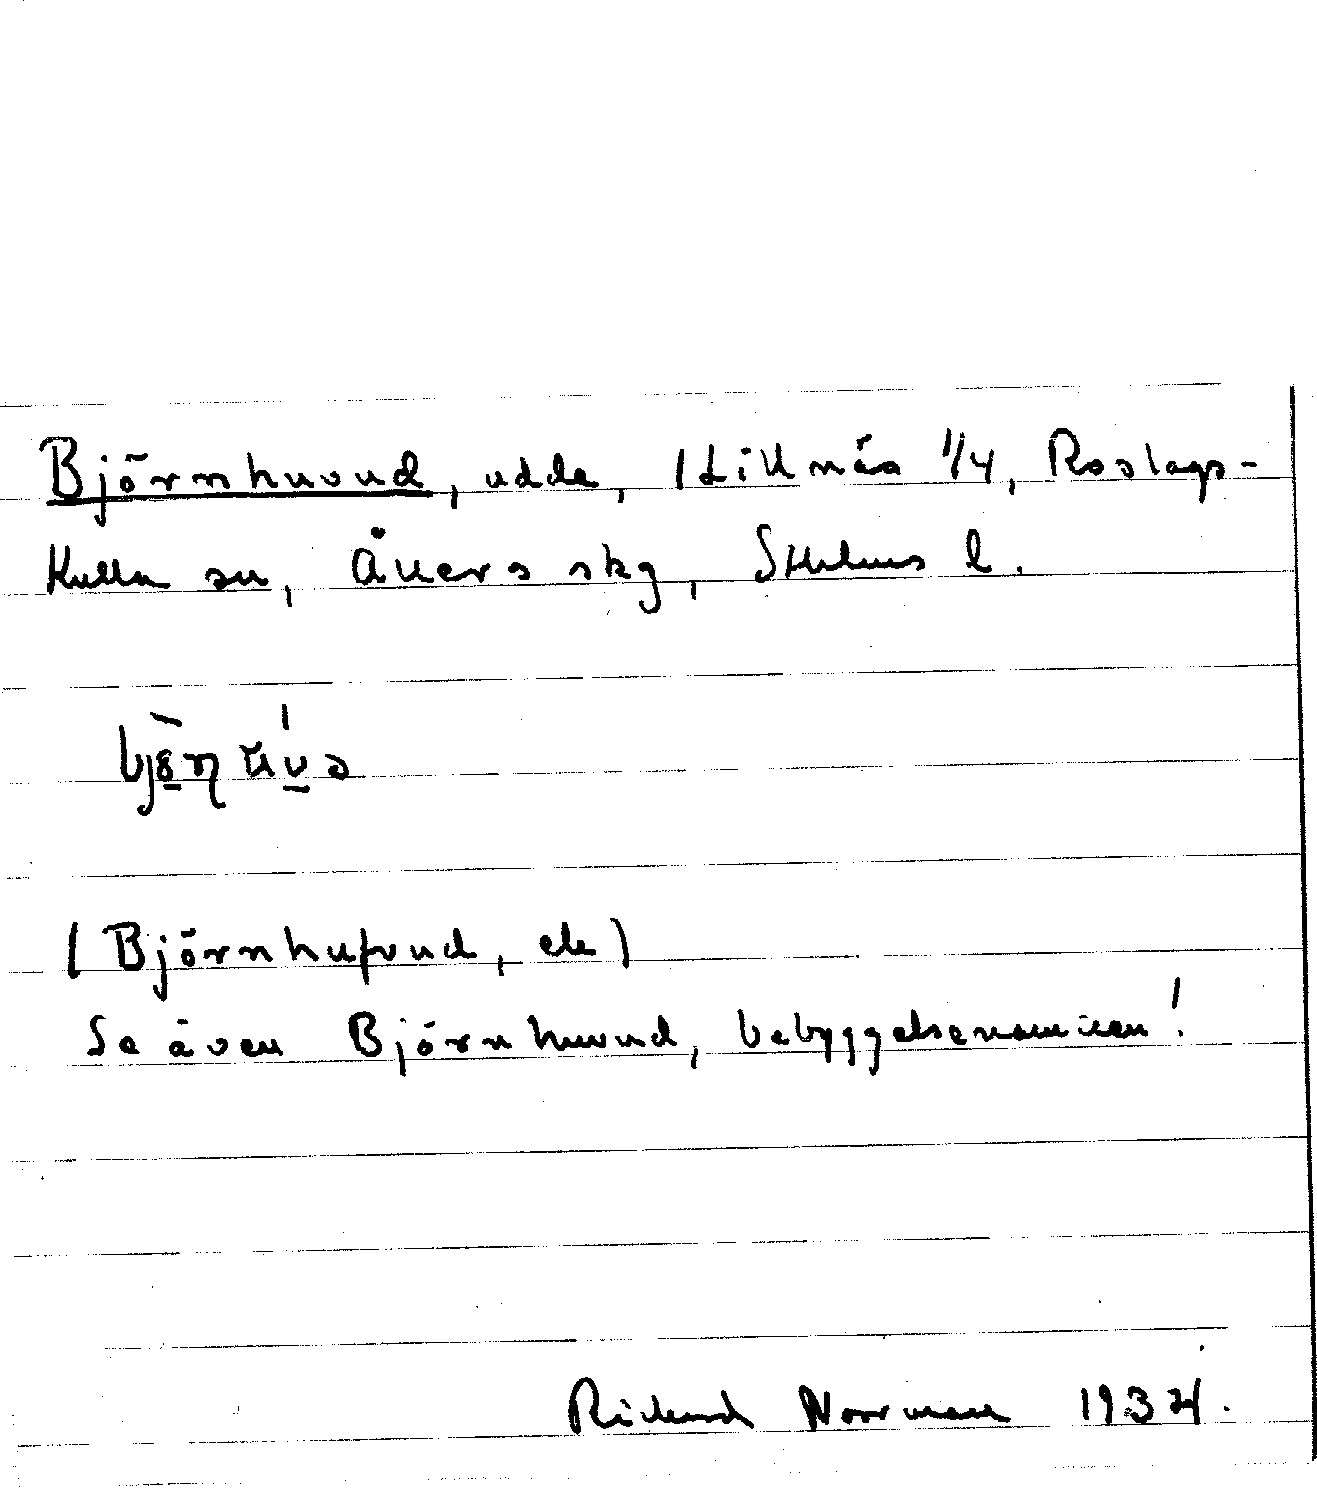 Björnhuvud, udde, (Lillnäs 1/4, Roslags-
Kulla sn, Åkers skg, Sthlms l.
(Björnhufvud, ek)
Se även Björnhuvud, bebyggelsenamnen!
Rickard Norrman 1934.